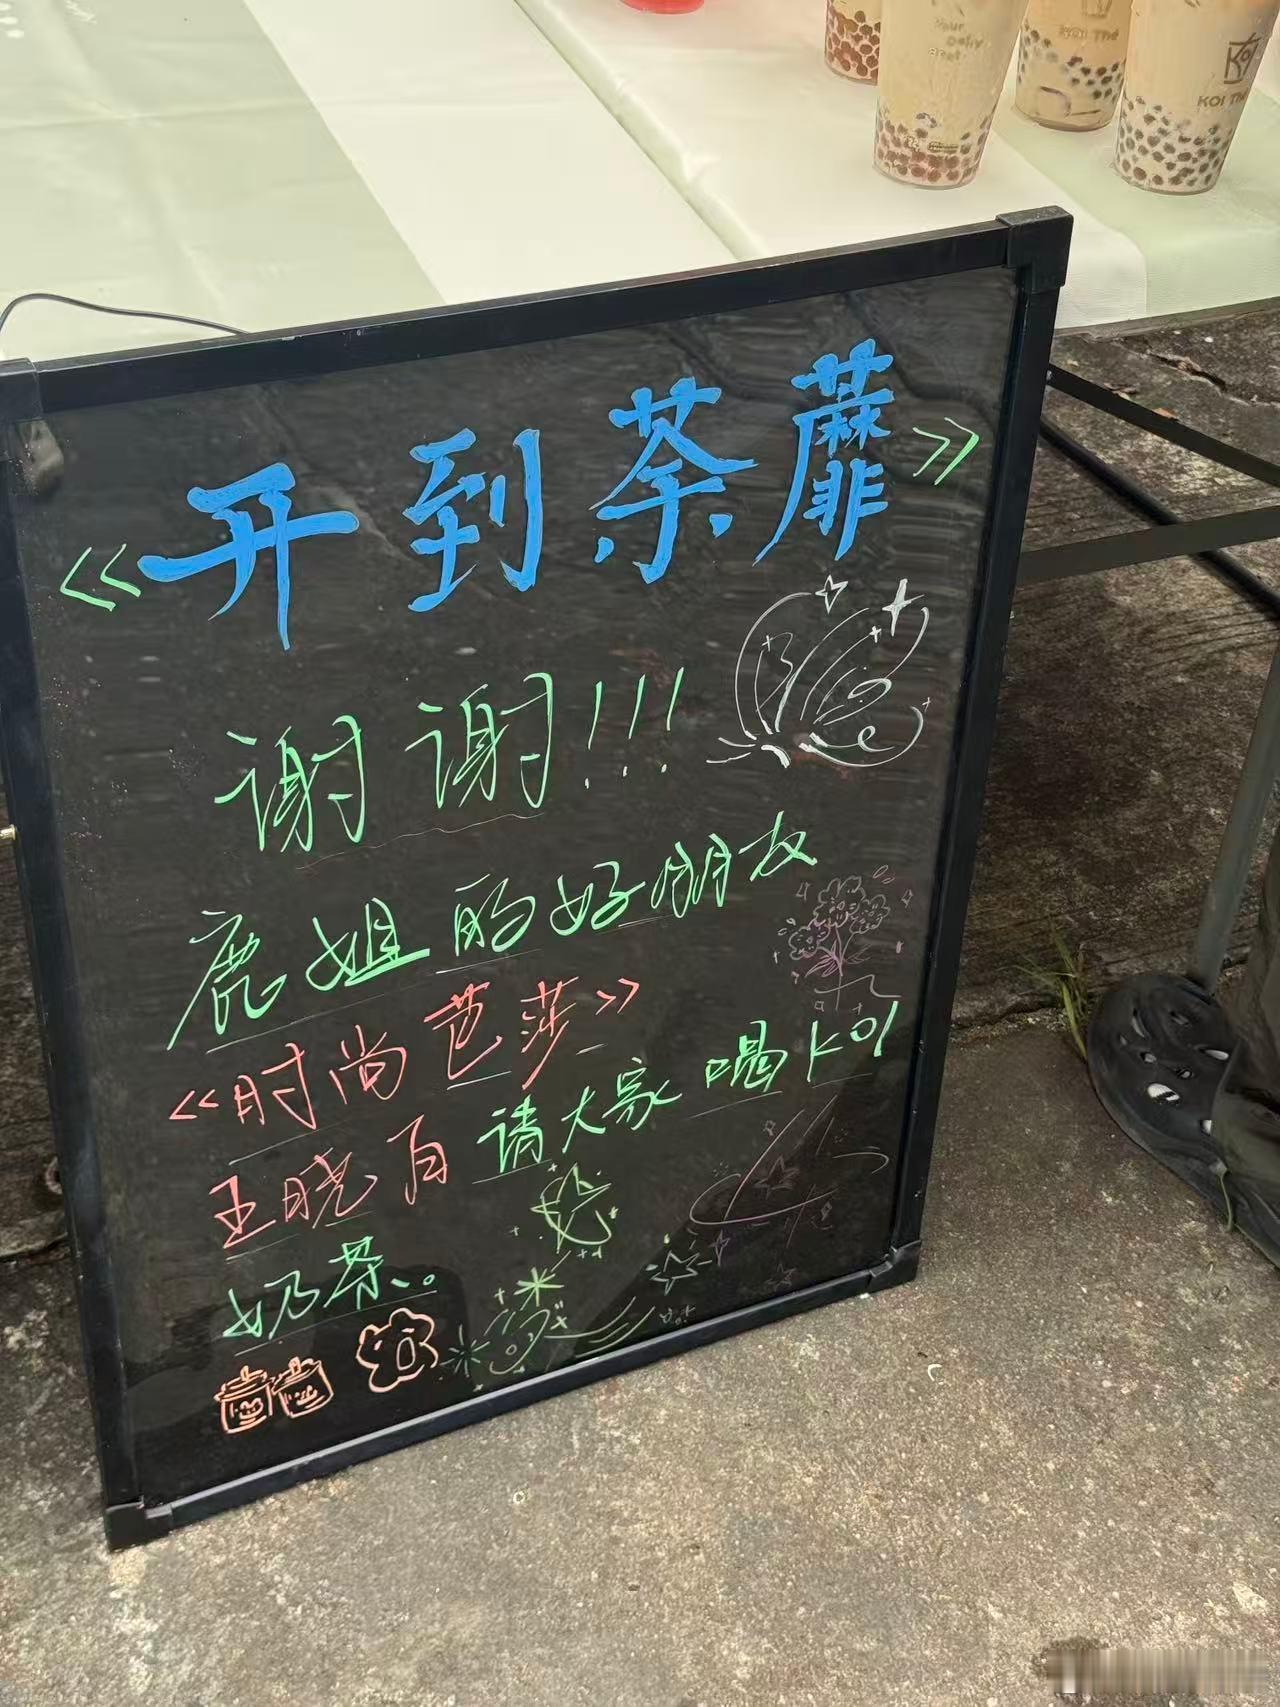 Your
Daily
KOI Thé
KOI
KOI Thé
《开到荼蘼》
谢谢!!!
鹿姐的好朋友
《时尚芭莎》
王晓百请大家喝KOI
奶茶、。